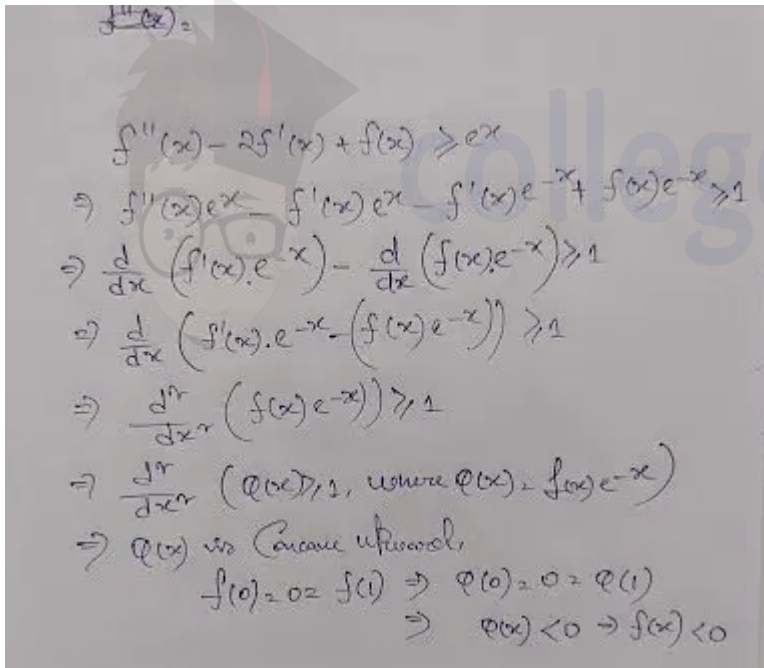 f''(x) =
f''(x) - 2f'(x) + f(x) ≥ e^x
⇒ f''(x)e^x - f'(x)e^x - f'(x)e^-x + f(x)e^-x ≥ 1
⇒ d/dx (f'(x).e^-x) - d/dx (f(x).e^-x) ≥ 1
⇒ d/dx (f'(x).e^-x - (f(x)e^-x)) ≥ 1
⇒ d²/dx² (f(x)e^-x)) ≥ 1
⇒ d²/dx² (φ(x) ≥ 1, where φ(x) = f(x)e^-x)
⇒ φ(x) is Concave upward,
f(0) = 0 = f(1) ⇒ φ(0) = 0 = φ(1)
⇒ φ(x) < 0 ⇒ f(x) < 0
colleg